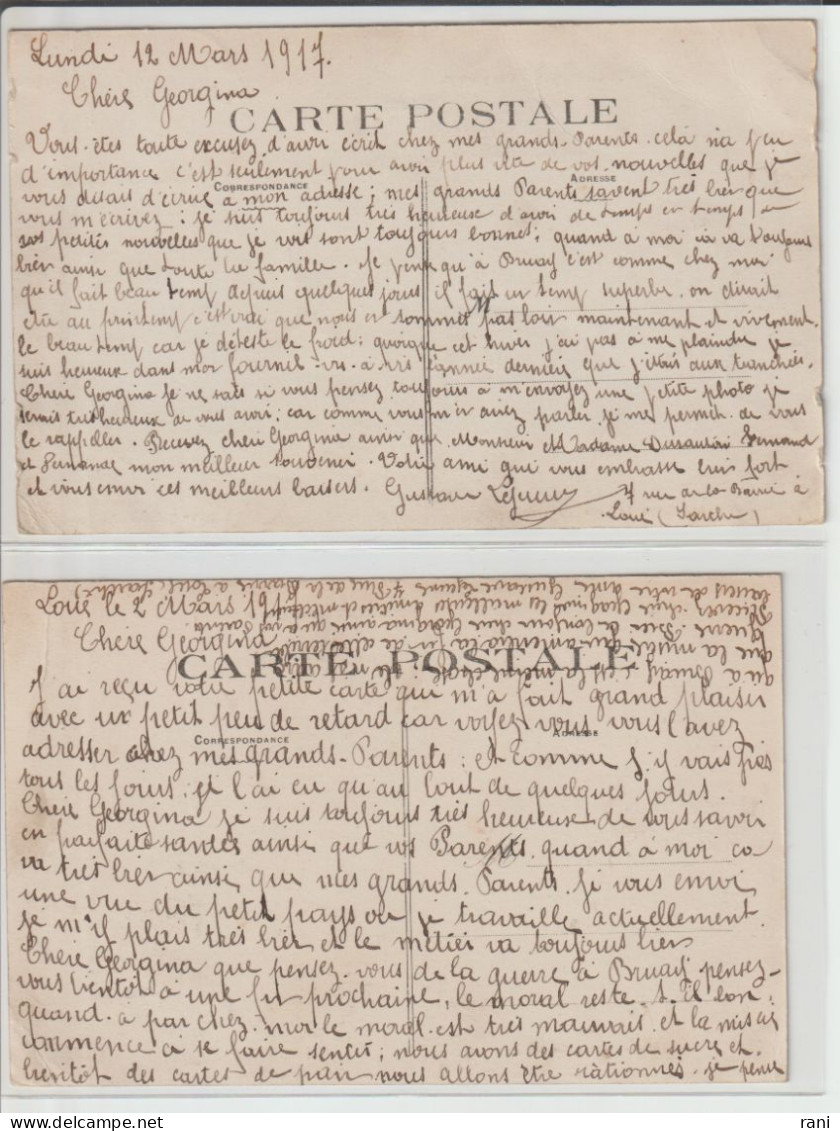 Lundi 12 Mars 1917.
Chère Georgina
CARTE POSTALE
Vous êtes toute excusez d'avoir écrit chez mes grands-Parents. celà n'a peu
d'importance c'est seulement pour avoir plus vite de vos nouvelles que je
CORRESPONDANCE
ADRESSE
vous disais d'écrire à mon adresse; mes grands Parents savent très bien que
vous m'écrivez: je suis toujours très heureuse d'avoir de temps en temps
vos petites nouvelles que je vois sont toujours bonnes; quand à moi ça va toujours
bien ainsi que toute la famille. Je pense qu'à Bruay c'est comme chez moi
qu'il fait beau temp depuis quelques jours il fait un temp superbe. on dirait
être au printemp c'est vrai que nous en sommes pas loin maintenant et vivement
le beau temp car je déteste le froid; quoique cet hiver j'ai pas à me plaindre je
suis heureux dans mon fournil vis-à-vis l'année dernière que j'étais aux tranchées.
Chère Georgina je ne sais si vous pensez toujours à m'envoyez une petite photo je
serais très heureux de vous avoir; car comme vous m'en aviez parler, je me permet de vous
le rappeller. Recevez chère Georgina ainsi que Monsieur Madame Fernand
et Fernande mon meilleur souvenir. Votre ami qui vous embrasse bien fort
et vous envoi ces meilleurs baisers. Gustave 7 rue de la Barre à
Loué (Sarthe)
Loué le 2 Mars 191
Chère Georgina
CARTE POSTALE
J'ai reçu votre petite carte qui m'a fait grand plaisir
avec un petit peu de retard car voyez vous vous l'avez
CORRESPONDANCE
ADRESSE
adresser chez mes grands-Parents: et comme j'y vais pas
tous les jours; je l'ai eu qu'au bout de quelques jours.
Chère Georgina je suis toujours très heureuse de vous savoir
en parfaite santée ainsi que vos Parents. quand à moi ça
va très bien ainsi que mes grands-Parents. Je vous envoi
une vue du petit pays où je travaille actuellement.
je m'y plais très bien et le métier va toujours bien
Chère Georgina que pensez-vous de la guerre à Bruay pensez-
vous bientôt à une fin prochaine, le moral reste-t-il bon;
quand à par chez-moi le moral est très mauvais et la misère
commence à se faire sentir; nous avons des cartes de sucre et
bientôt des cartes de pain nous allons être rationnés. je pense
qu'à Bruay c'est la même chose;
Recevez chère Georgina les meilleures amitiés et meilleurs
baisers de votre ami Gustave 7 Rue de la Barre à Loué (Sarthe)
rani